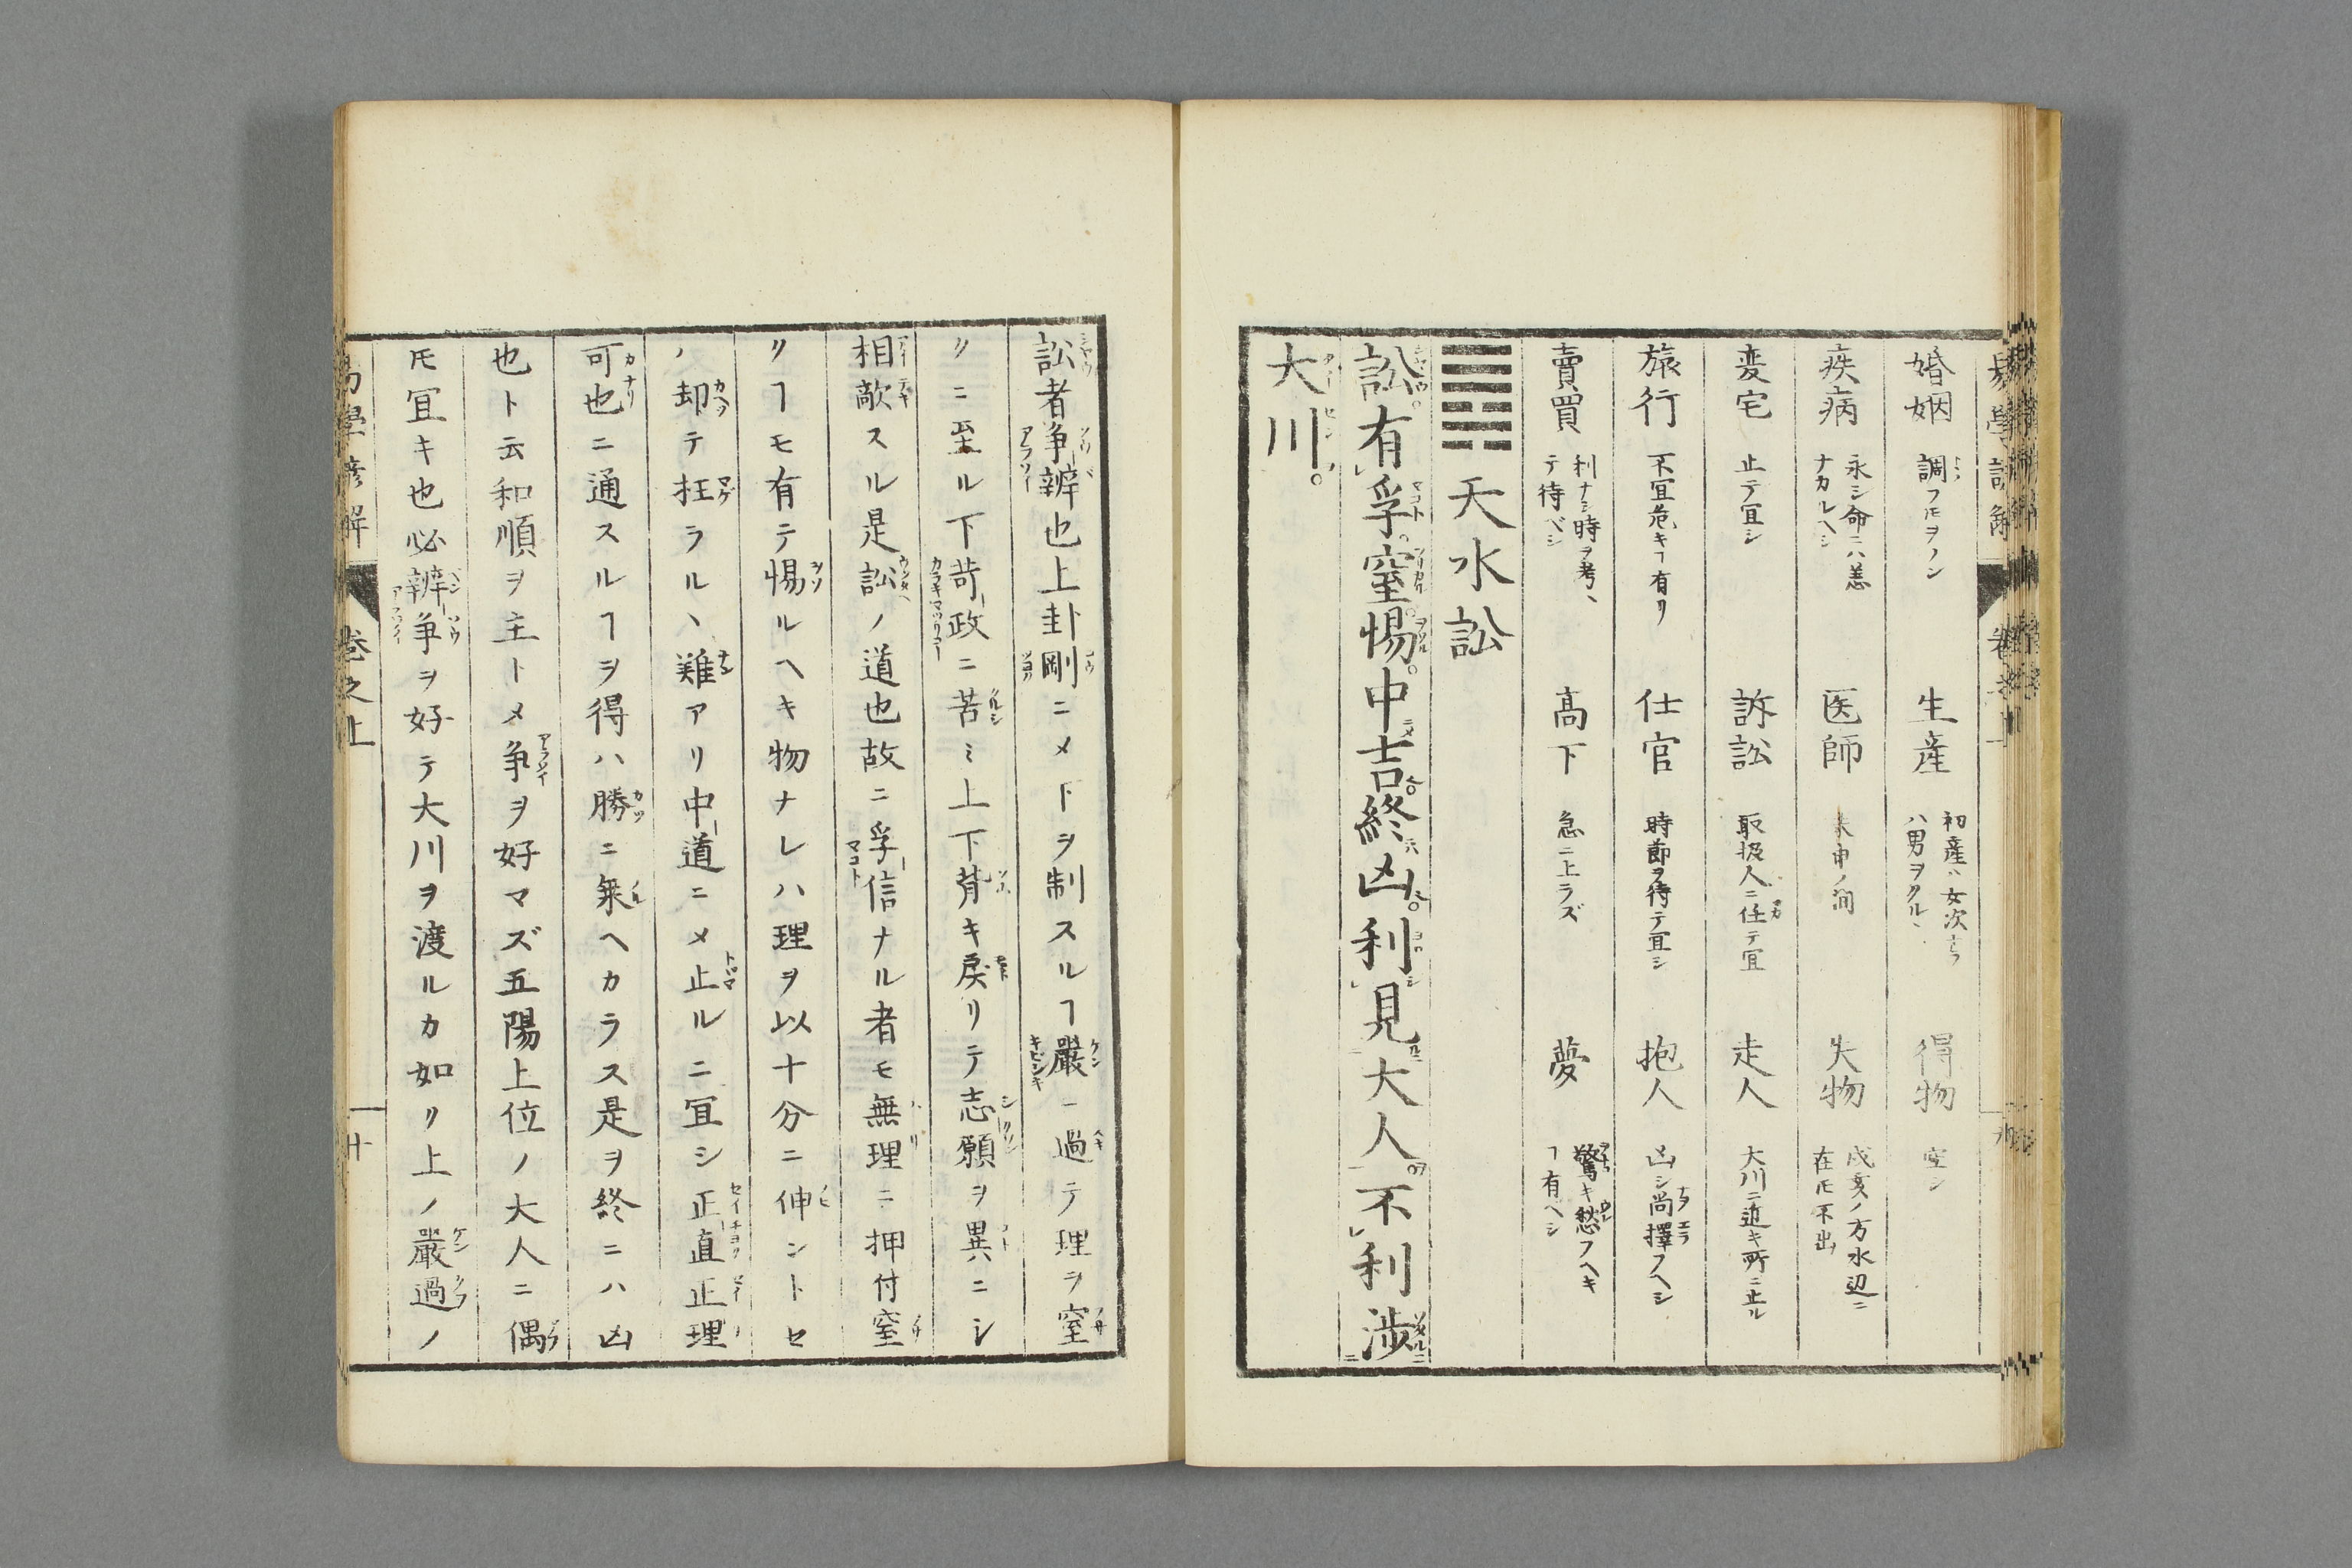 婚姻 調フ𪜈ヲソシ 生産 初産ハ女次ナラハ男ヲクルヽ 得物 空シ
疾病 永シ命ニハ恙ナカルヘシ 医師 未申ノ間 失物 戌亥ノ方水辺ニ在𪜈不出
変宅 止テ宜シ 訴訟 取扱人ニ任テ宜 走人 大川ニ近キ所ニ止ル
旅行 不宜危キヿ有リ 仕官 時節ヲ待テ宜シ 抱人 凶シ尚擇フヘシ
賣買 利ナシ時ヲ考ヘテ待ベシ 高下 急ニ上ラズ 夢 驚キ愁フヘキヿ有ヘシ
䷅ 天水訟
訟有孚窒惕中吉終凶利見大人不利渉
大川
訟者争辨也上卦剛ニメ下ヲ制スルヿ嚴過テ理ヲ窒
リニ至ル下苛政ニ苦ミ上下背キ戻リテ志願ヲ異ニシ
相敵スル是訟ノ道也故ニ孚信ナル者モ無理ニ押付窒
リヿモ有テ惕ルヘキ物ナレハ理ヲ以十分ニ伸ントセ
ハ却テ枉ラルヽ難アリ中道ニメ止ルニ宜シ正直正理
可也ニ通スルヿヲ得ハ勝ニ乗ヘカラス是ヲ終ニハ凶
也ト云和順ヲ主トメ争ヲ好マズ五陽上位ノ大人ニ偶
𪜈宜キ也必辨争ヲ好テ大川ヲ渡ルカ如リ上ノ嚴過ノ
易學診解 巻之上 二十